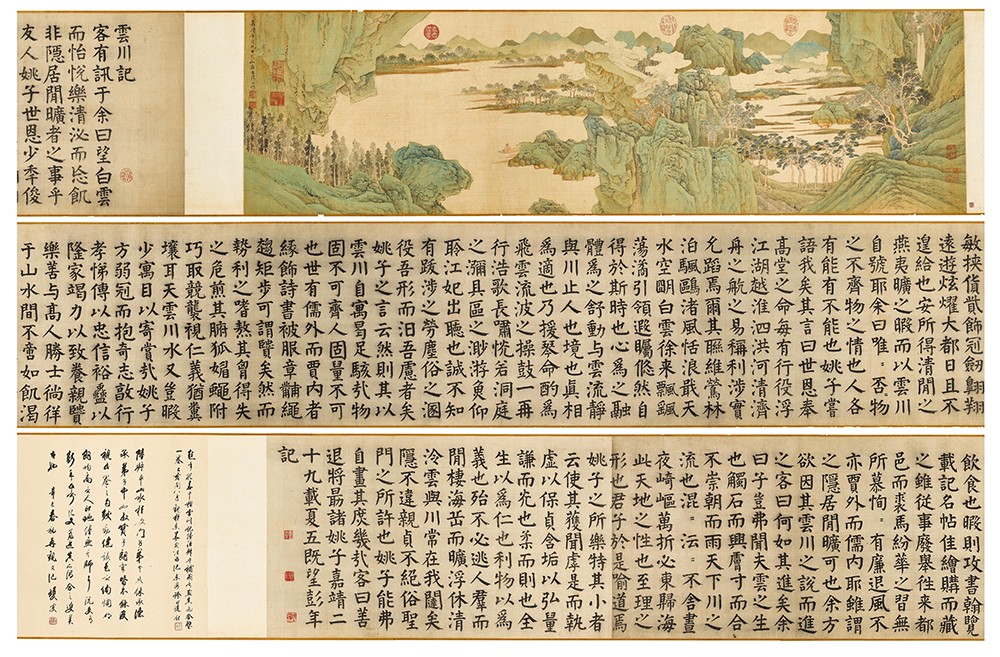 雲川記
客有訊于余曰望白雲
而怡悅樂清泌而忘飢
非隱居閒曠者之事乎
友人姚子世恩少季俊
敏挾貲散飾冠劍翱翔
遠遊炫燿大都日且不
遑給也安所得清閒之
燕夷曠之暇而以雲川
自號耶余曰唯=否=物
之不齊物之情也人各
有能有不能也姚子嘗
語我矣其言曰世恩奉
髙堂之命每有行役浮
江湖越淮泗洪河清濟
舟之航之易稱利涉實
允蹈焉爾其聯維鶯林
泊颿鷗渚風恬浪戢天
水空明白雲徐來飄飄
蕩潏引領遐矚悠然自
得於斯時也心爲之融
體爲之舒動與雲流靜
與川止人也境也真相
爲適也乃援琴命酌爲
飛雲流波之操鼓一再
行浩歌長嘯恍若洞庭
之瀰具區之渺游魚仰
聆江妃出聽也誠不知
有跋涉之勞塵俗之溷
役吾形而汩吾慮者矣
姚子之言云然則其以
雲川自寓曷足駭哉物
固不可齊人固量不可
也世有儒外而賈内者
緣飾詩書被服章黼繩
趨矩步可謂賢矣然而
勢利之嗜熬其膏得失
之危煎其腑狐媚蠅附
巧取競襲視仁義猶糞
壤耳天雲川水又豈暇
少寓目以寄賞哉姚子
方弱冠而抱奇志敦行
孝悌傳以忠信裕蠱以
隆家竭力以致養親賢
樂善与髙人勝士徜徉
于山水間不啻如飢渴
飲食也暇則攻書翰覽
載記名帖佳繪購而藏
之雖從事廢舉徃來都
邑而裘馬紛華之習無
所慕恂=有廉退風不
亦賈外而儒内耶雖謂
之隱居閒曠可也余方
欲因其雲川之說而進
之客曰何如其進余
曰子豈弗聞夫雲之生
也觸石而興膚寸而合
不崇朝而雨天下川之
流也混=沄=不舍晝
夜崎嶇萬折必東歸海
此天地之性也至理之
形也君子於是喻道焉
姚子之所樂特其小者
云使其獲聞虖是而執
虛以保貞含垢以弘量
謙而光已柔而則也全
生以爲仁也利物以爲
義也殆不必逃人羣而
閒棲海岳而曠浮休清
泠雲與川常在我闥矣
隱不違親貞不絕俗聖
門之所許也姚子能弗
自畫其庶幾哉客曰善
退將勗諸姚子嘉靖二
十九載夏五既望彭年
記